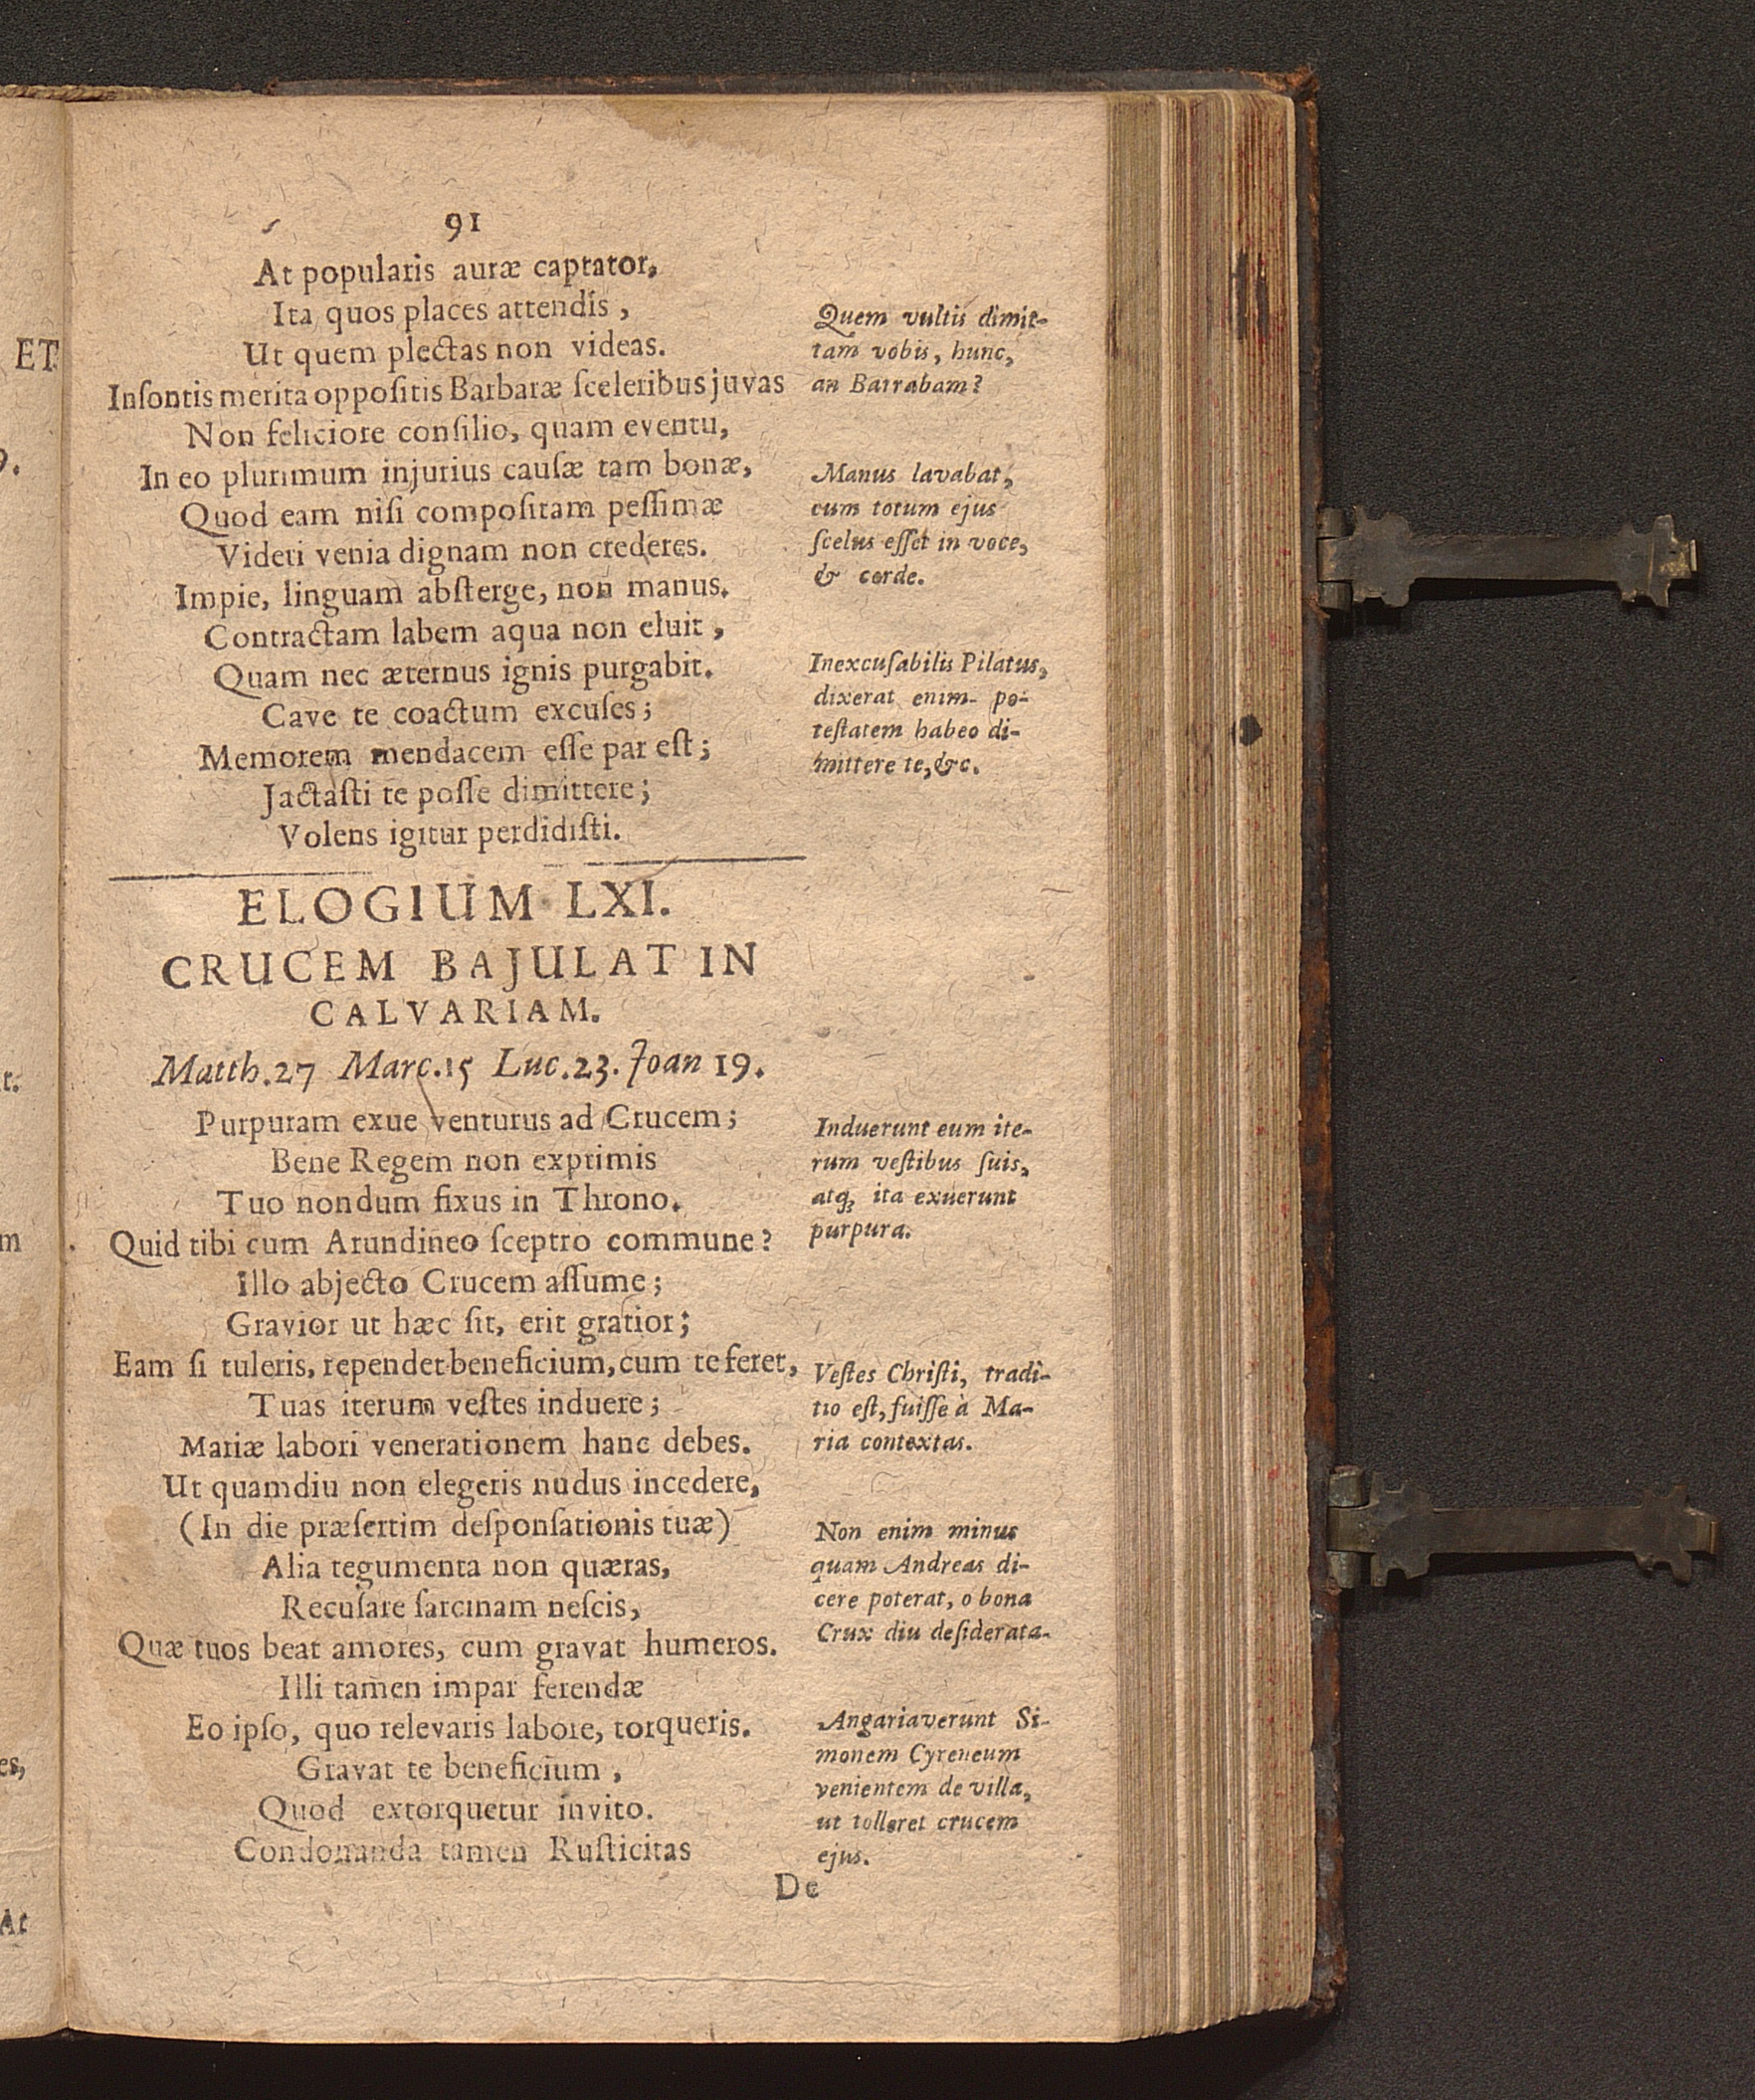 91
At popularis auræ captator,
Ita quos places attendis ,
Ut quem plectas non videas.
Inſontis merita oppoſitis Barbaræ ſceleribus juvas
Non feliciore conſilio, quam eventu,
In eo plurimum injurius cauſæ tam bonæ,
Quod eam niſi compoſitam peſſimæ
Videri venia dignam non crederes.
Impie, linguam abſterge, non manus.
Contractam labem aqua non eluit ,
Quam nec æternus ignis purgabit.
Cave te coactum excuſes;
Memorem mendacem eſſe par eſt;
Jactaſti te poſſe dimittere;
Volens igitur perdidiſti.
Quem vultis dimit-
tam vobis, hunc,
an Barrabam?
Manus lavabat,
cum totum ejus
ſcelus eſſet in voce,
& corde.
Inexcuſabilis Pilatus,
dixerat enim- po-
teſtatem habeo di-
mittere te, &c.
ELOGIUM LXI.
CRUCEM BAJULAT IN
CALVARIAM.
Matth.27 Marc.15 Luc.23. Joan 19.
Purpuram exue venturus ad Crucem;
Bene Regem non exprimis
Tuo nondum fixus in Throno.
Quid tibi cum Arundineo ſceptro commune?
Illo abjecto Crucem aſſume;
Gravior ut hæc ſit, erit gratior;
Eam ſi tuleris, rependet beneficium, cum te feret,
Tuas iterum veſtes induere;
Mariæ labori venerationem hanc debes.
Ut quamdiu non elegeris nudus incedere,
(In die præſertim deſponſationis tuæ)
Alia tegumenta non quæras,
Recuſare ſarcinam neſcis,
Quæ tuos beat amores, cum gravat humeros.
Illi tam̃en impar ferendæ
Eo ipſo, quo relevaris labore, torqueris.
Gravat te beneficium ,
Quod extorquetur invito.
Condonanda tamen Ruſticitas
Induerunt eum ite-
rum veſtibus ſuis,
atq; ita exuerunt
purpura.
Veſtes Chriſti, tradi-
tio eſt, fuiſſe à Ma-
ria contextas.
Non enim minus
quam Andreas di-
cere poterat, o bona
Crux diu deſiderata.
Angariaverunt Si-
monem Cyreneum
venientem de villa,
ut tolleret crucem
ejus.
De
ET
9.
t.
m
es,
At